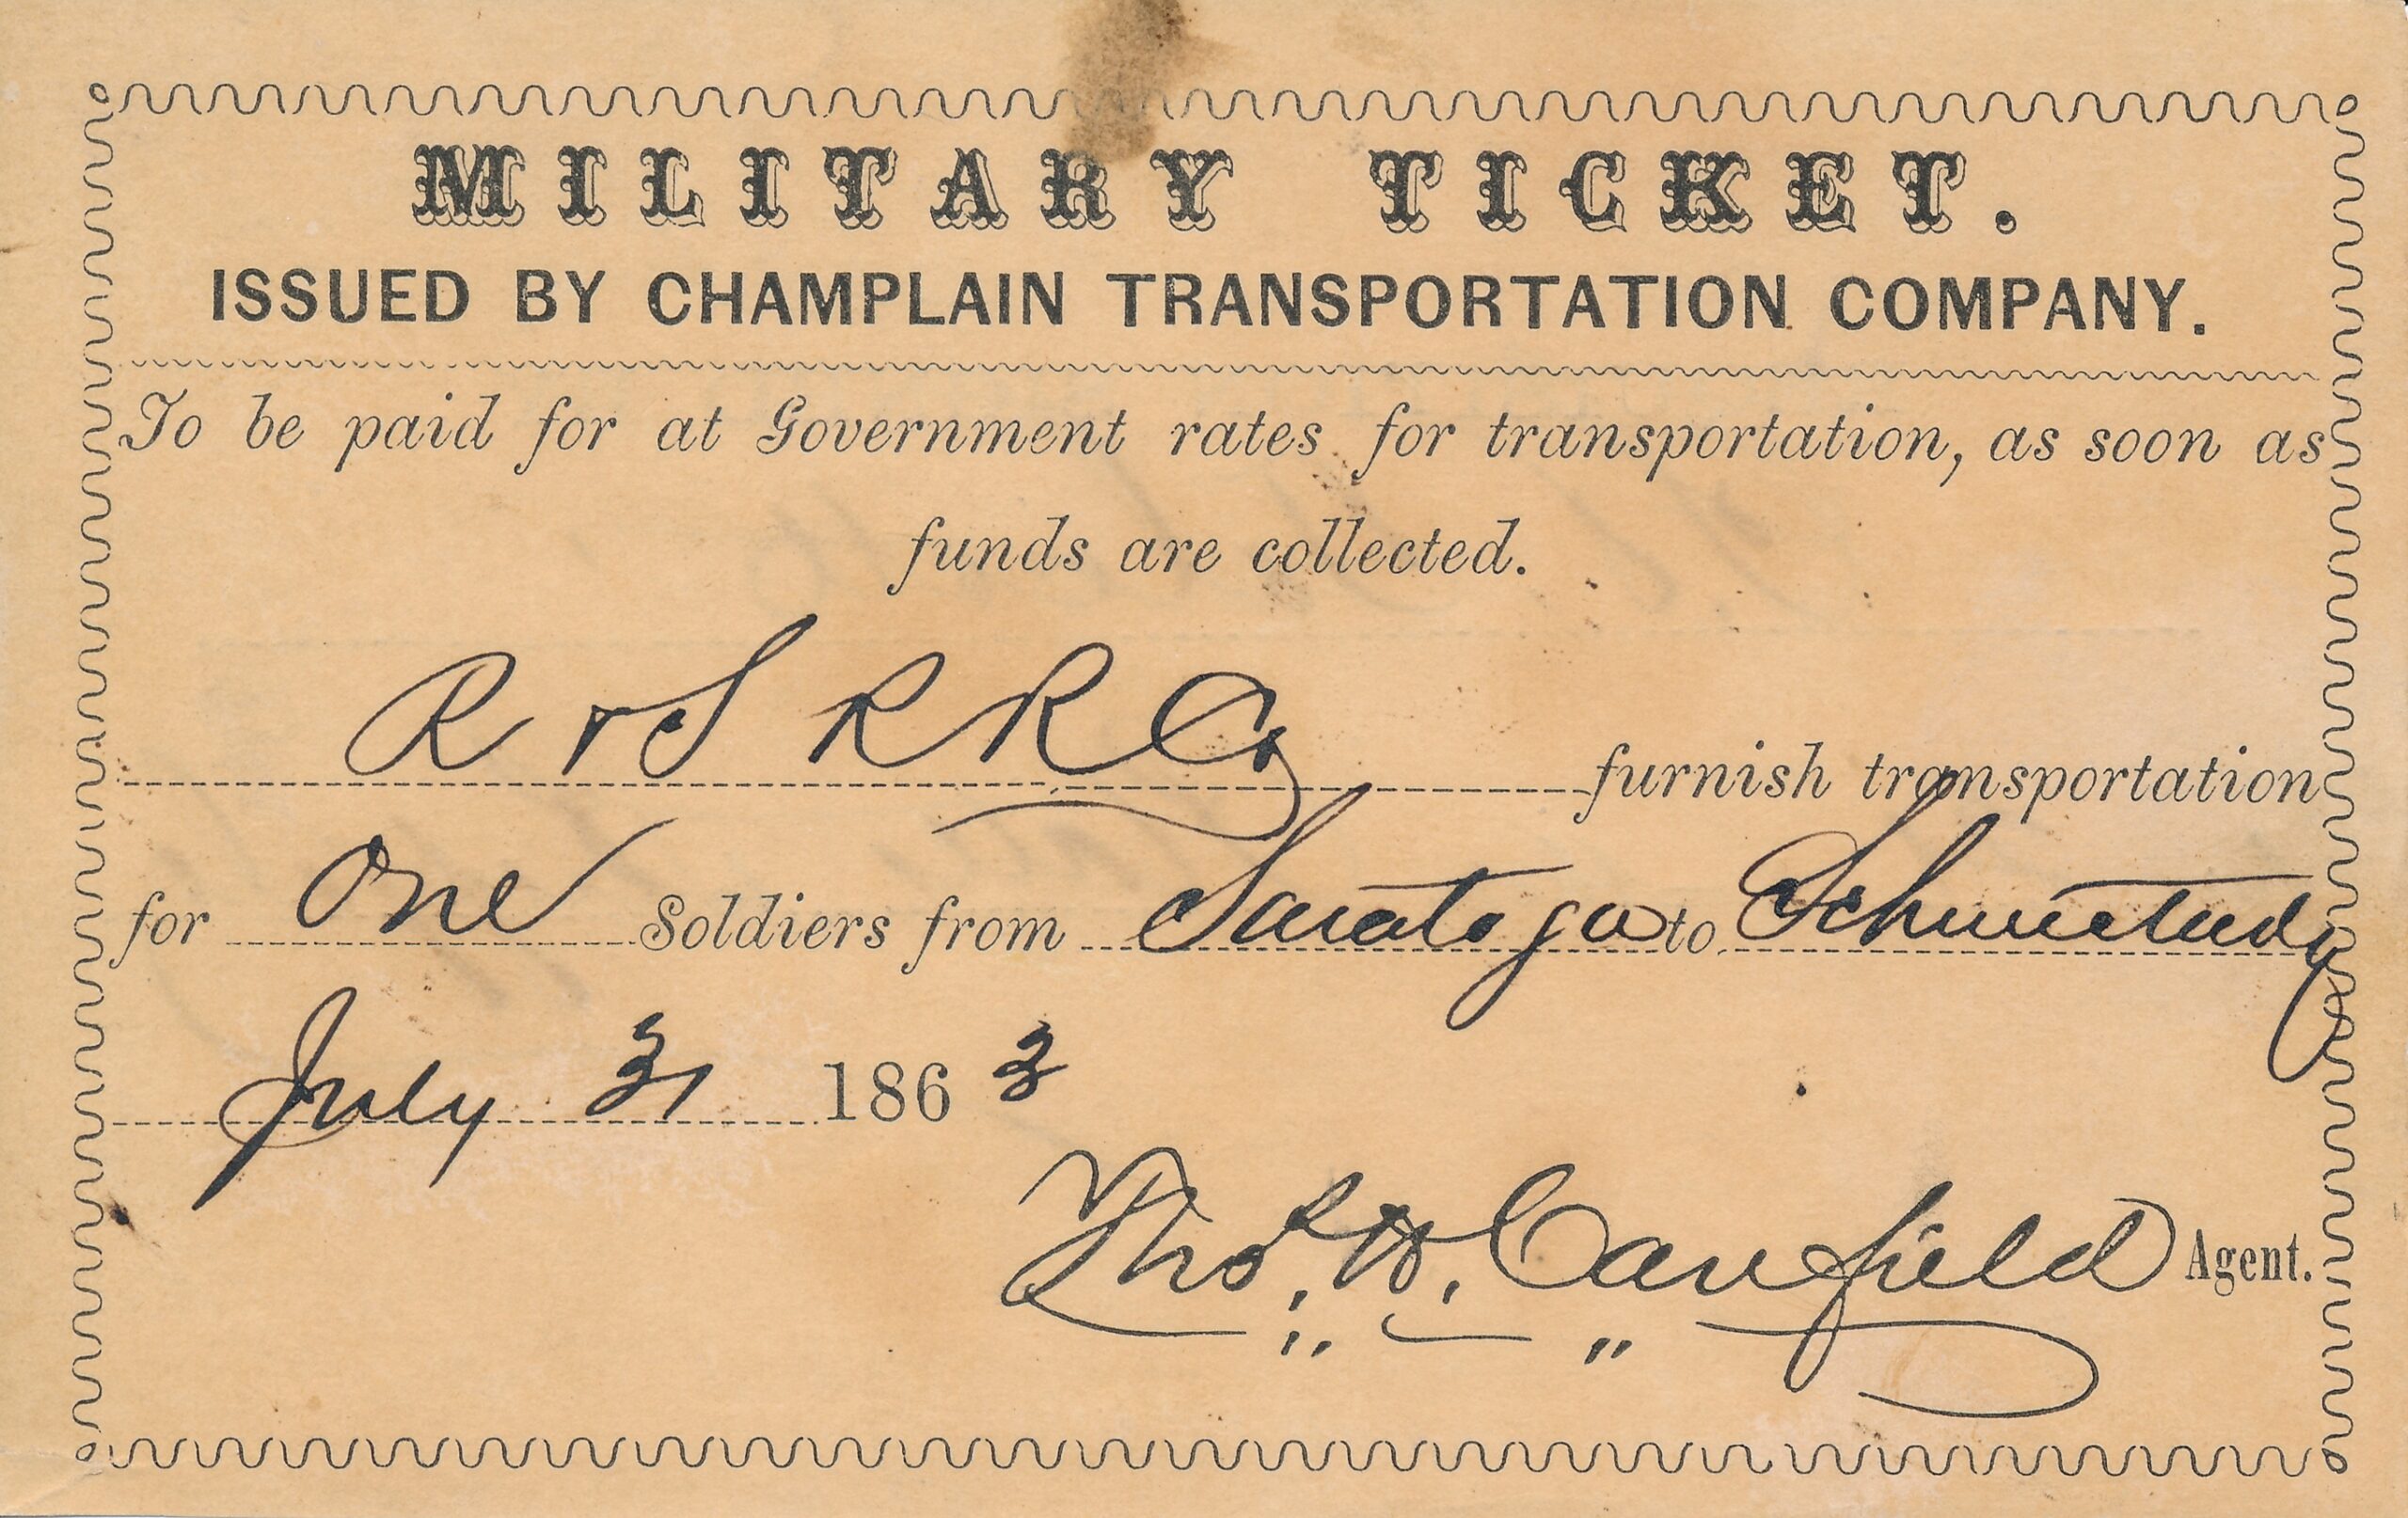 MILITARY TICKET.
ISSUED BY CHAMPLAIN TRANSPORTATION COMPANY.
To be paid for at Government rates for transportation, as soon as
funds are collected.
R & S R R Co furnish transportation
for One Soldiers from Saratoga to Schenectady
July 31 1863
Thos. W. Canfield Agent.